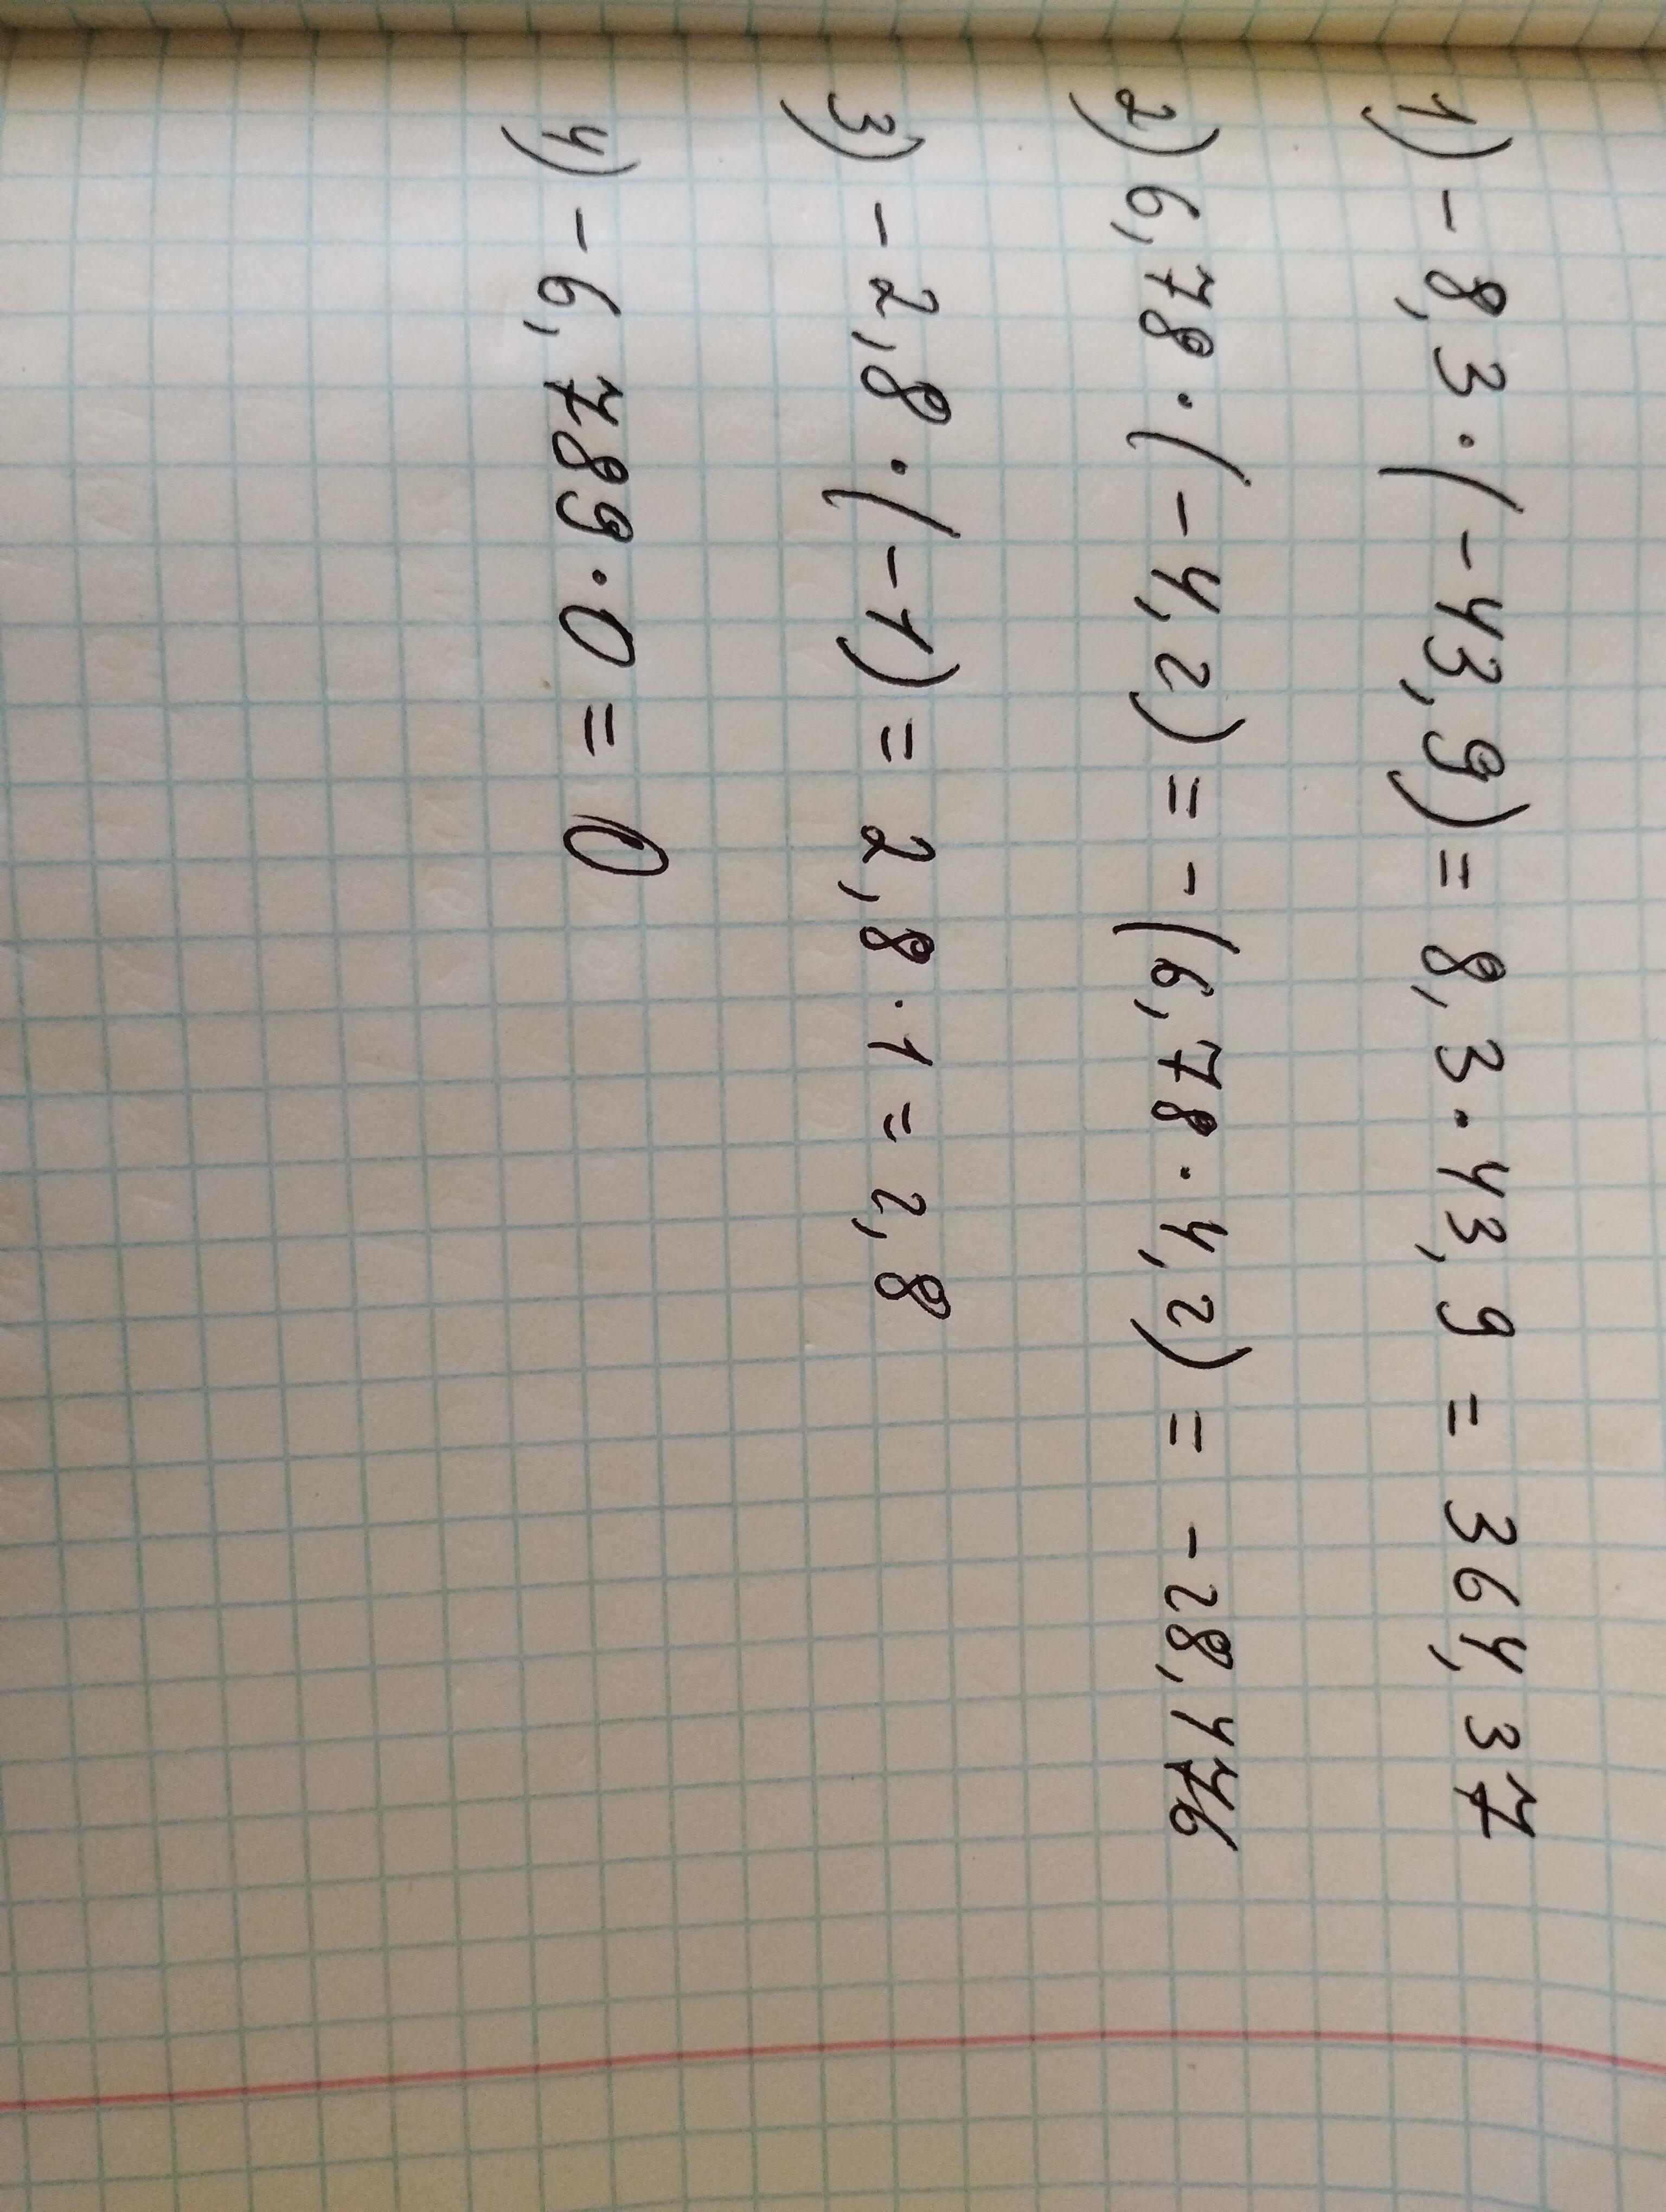 1) - 8,3 · (-43,9) = 8,3 · 43,9 = 364,37
2) 6,78 · (-4,2) = - (6,78 · 4,2) = - 28,476
3) - 2,8 · (-1) = 2,8 · 1 = 2,8
4) - 6,789 · 0 = 0